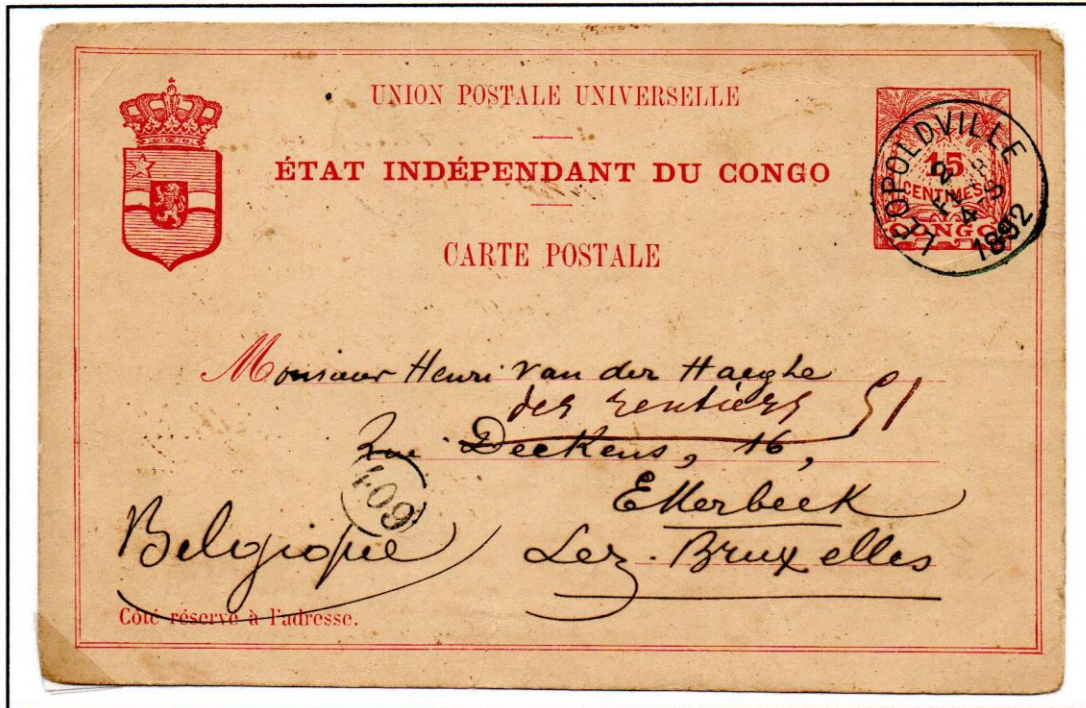 UNION POSTALE UNIVERSELLE
ÉTAT INDÉPENDANT DU CONGO
CARTE POSTALE
15
CENTIMES
CONGO
LEOPOLDVILLE
2
FEVR
4-5
1892
Monsieur Henri Van der Haeghe
des rentiers 51
Rue Deckens, 16,
Etterbeek
Lez-Bruxelles
409
Belgique
Côté réservé à l'adresse.